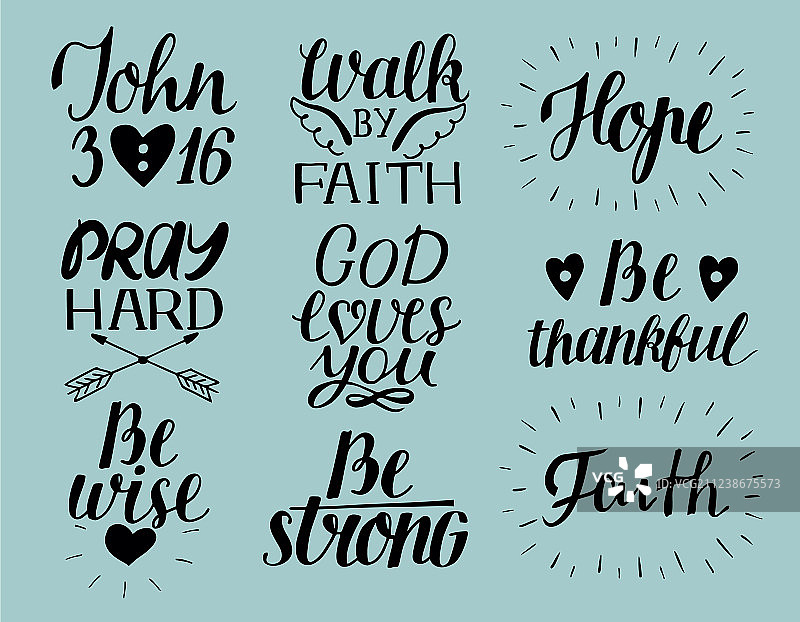 John
3:16
Walk
BY
FAITH
Hope
PRAY
HARD
GOD
loves
you
Be
thankful
Be
wise
Be
strong
Faith
VCG
ID:VCG211238675573